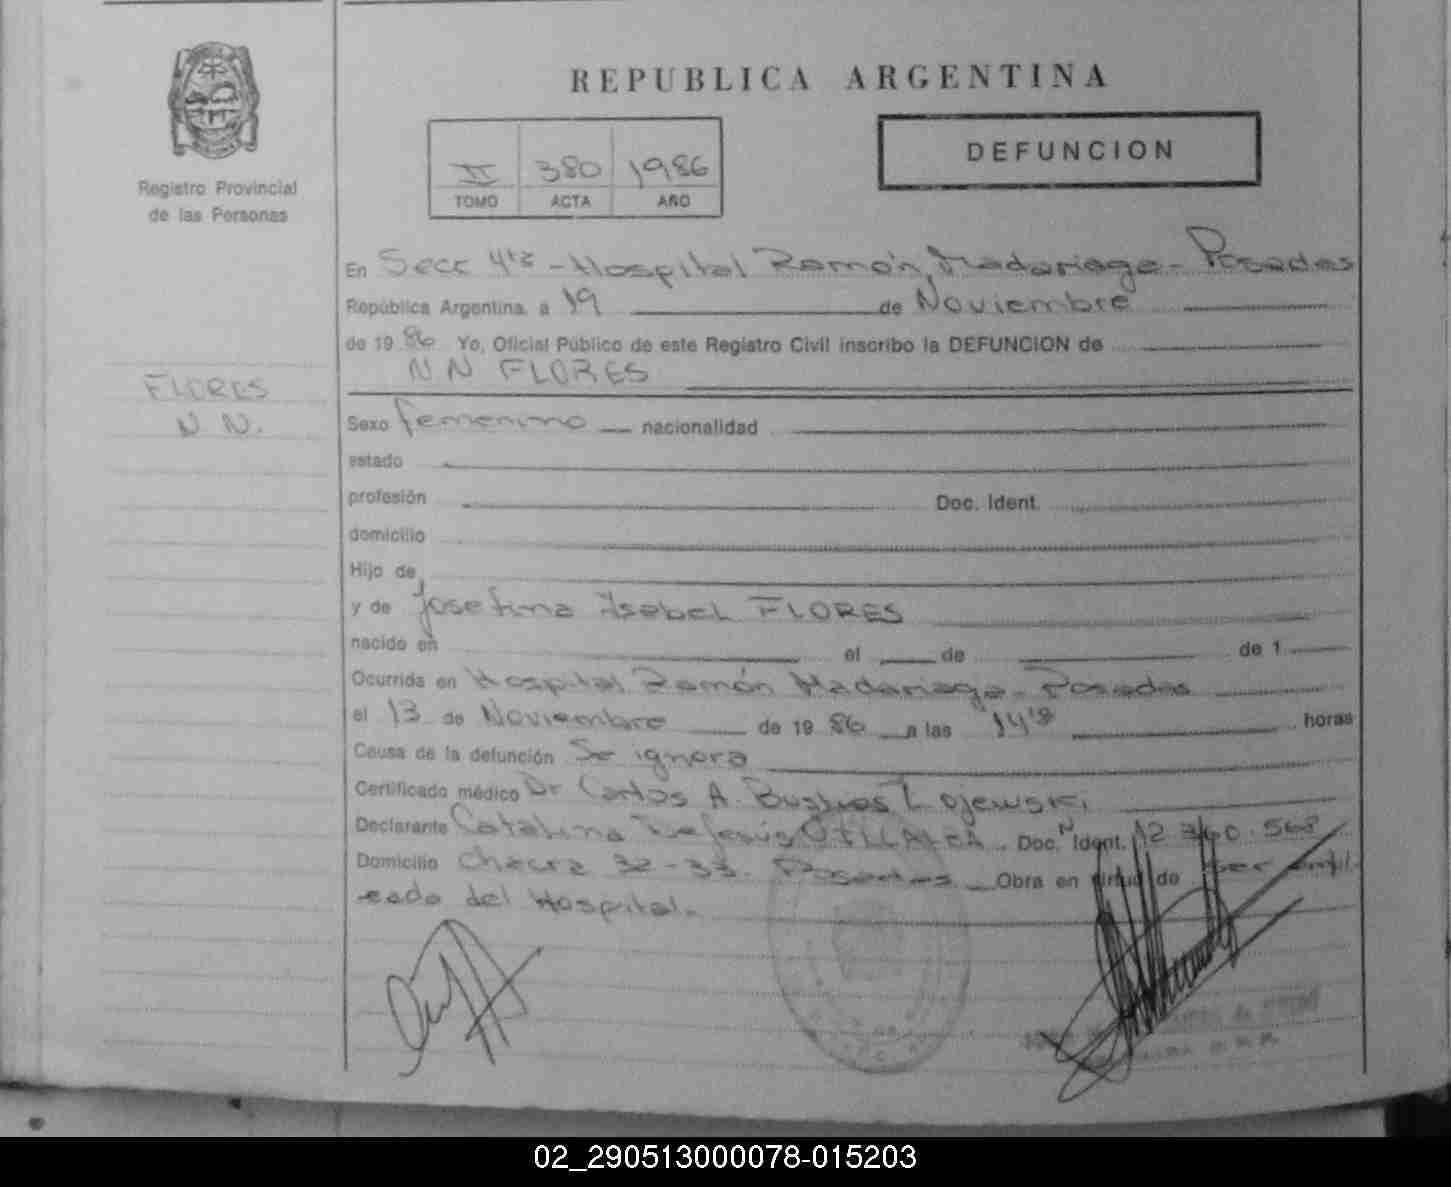 REPUBLICA ARGENTINA
DEFUNCION
II 380 1986
TOMO ACTA AÑO
Registro Provincial
de las Personas
En Secc 4ta - Hospital Ramón Madariaga - Posadas
República Argentina, a 19 de Noviembre
de 1986 Yo, Oficial Público de este Registro Civil inscribo la DEFUNCION de
N N FLORES
FLORES
N. N.
Sexo femenino nacionalidad
estado
profesión Doc. Ident.
domicilio
Hijo de
y de Josefina Isabel FLORES
nacido en el de de 1
Ocurrida en Hospital Ramón Madariaga - Posadas
el 13 de Noviembre de 1986 a las horas
Causa de la defunción Se ignora
Certificado médico Dr Carlos A. Bustros
Declarante Catalina Dejesús Doc. Ident. 12.340.568
Domicilio Chacra 32-33. Posadas Obra en virtud de ser empl-
eado del Hospital.
02_290513000078-015203